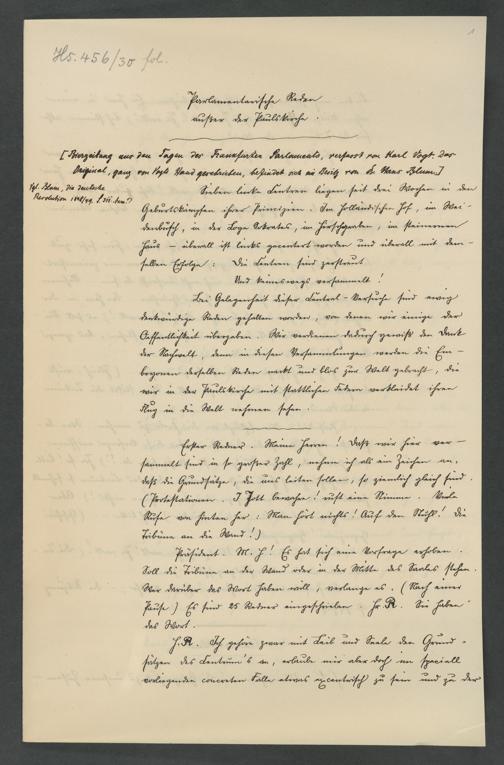 Hs. 456/30 fol.
1
Parlamentarische Reden
außer der Paulskirche.
[Bierzeitung aus den Tagen des Frankfurter Parlaments, verfasst von Karl Vogt. Das
Original, ganz von Vogts Hand geschrieben, befindet sich im Besitz von Dr. Hans Blum.]
Vgl. Blum, die deutsche
Revolution 1848/49,
Sieben linke Centren liegen seit drei Wochen in den
Geburtskämpfen ihrer Prinzipien. Im Holländischen Hof, im Wei-
denbusch, in der Loge Sokrates, im Hirschgraben, im steinernen
Haus – überall ist links gecentert worden und überall mit dem-
selben Erfolge: Die Centren sind zerstreut
Und keineswegs versammelt!
Bei Gelegenheit dieser Central-Versuche sind ewig
denkwürdige Reden gehalten worden, von denen wir einige der
Oeffentlichkeit übergeben. Wir verdienen dadurch gewiß den Dank
der Nachwelt, denn in diesen Versammlungen werden die Em-
bryonen derselben Reden nackt und blos zur Welt gebracht, die
wir in der Paulskirche mit stattlichen Federn verkleidet ihren
Flug in die Welt nehmen sehen.
Erster Redner. Meine Herren! Daß wir hier ver-
sammelt sind in so großer Zahl, nehme ich als ein Zeichen an,
daß die Grundsätze, die uns leiten sollen, so ziemlich gleich sind.
(Protestationen. I Gott bewahre! ruft eine Stimme. Viele
Rufe von hinten her: Man hört nichts! Auf den Stuhl! Die
Tribüne an die Wand!)
Präsident. M. H! Es hat sich eine Vorfrage erhoben.
Soll die Tribüne an der Wand oder in der Mitte des Saales stehen.
Wer darüber das Wort haben will, verlange es. (Nach einer
Pause) Es sind 25 Redner eingeschrieben. Hr. R. Sie haben
das Wort.
H. R. Ich gehöre zwar mit Leib und Seele den Grund-
sätzen des Centrum's an, erlaube mir aber doch im speciell
vorliegenden concreten Falle etwas excentrisch zu sein und zu der